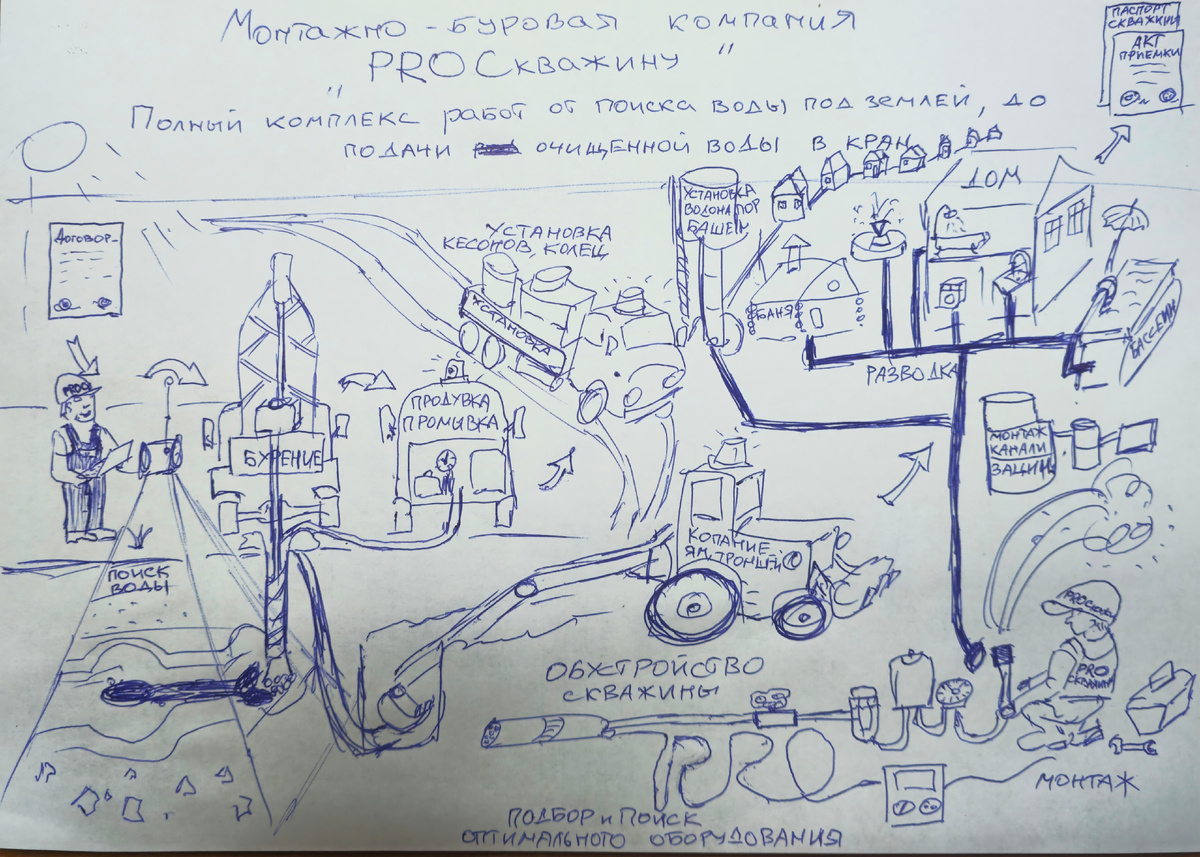 Монтажно-буровая компания
"PROСкважину"
Полный комплекс работ от поиска воды под землей, до
подачи очищенной воды в кран
ПАСПОРТ
СКВАЖИНЫ
АКТ
ПРИЕМКИ
Договор
УСТАНОВКА
КЕСОНОВ, КОЛЕЦ
УСТАНОВКА
УСТАНОВКА
ВОДОНАПОР
БАШЕН
ДОМ
БАНЯ
БАССЕЙН
РАЗВОДКА
PRO
БУРЕНИЕ
ПРОДУВКА
ПРОМЫВКА
МОНТАЖ
КАНАЛИ
ЗАЦИИ
КОПАНИЕ
ЯМ, ТРОНШЕЙ
ПОИСК
ВОДЫ
ОБУСТРОЙСТВО
СКВАЖИНЫ
PROСкважину
PRO
СКВАЖИНУ
PRO
МОНТАЖ
ПОДБОР и ПОИСК
ОПТИМАЛЬНОГО ОБОРУДОВАНИЯ